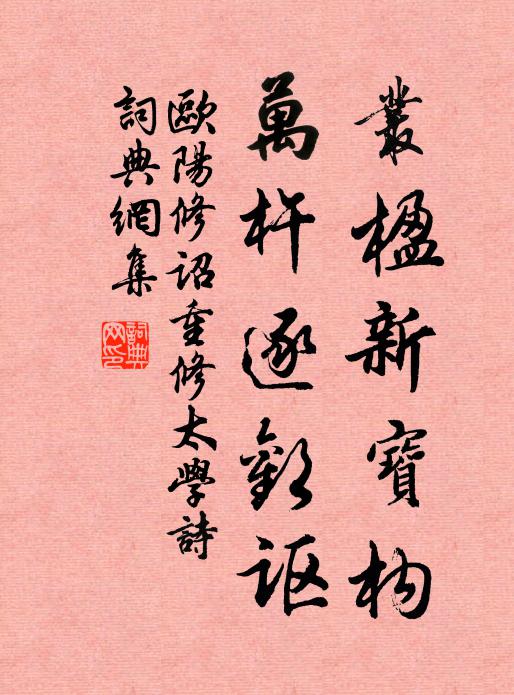 叢楹新寶构
萬杵逐歡讴
歐陽修詔重修太學詩
詞典網集
詞典网印